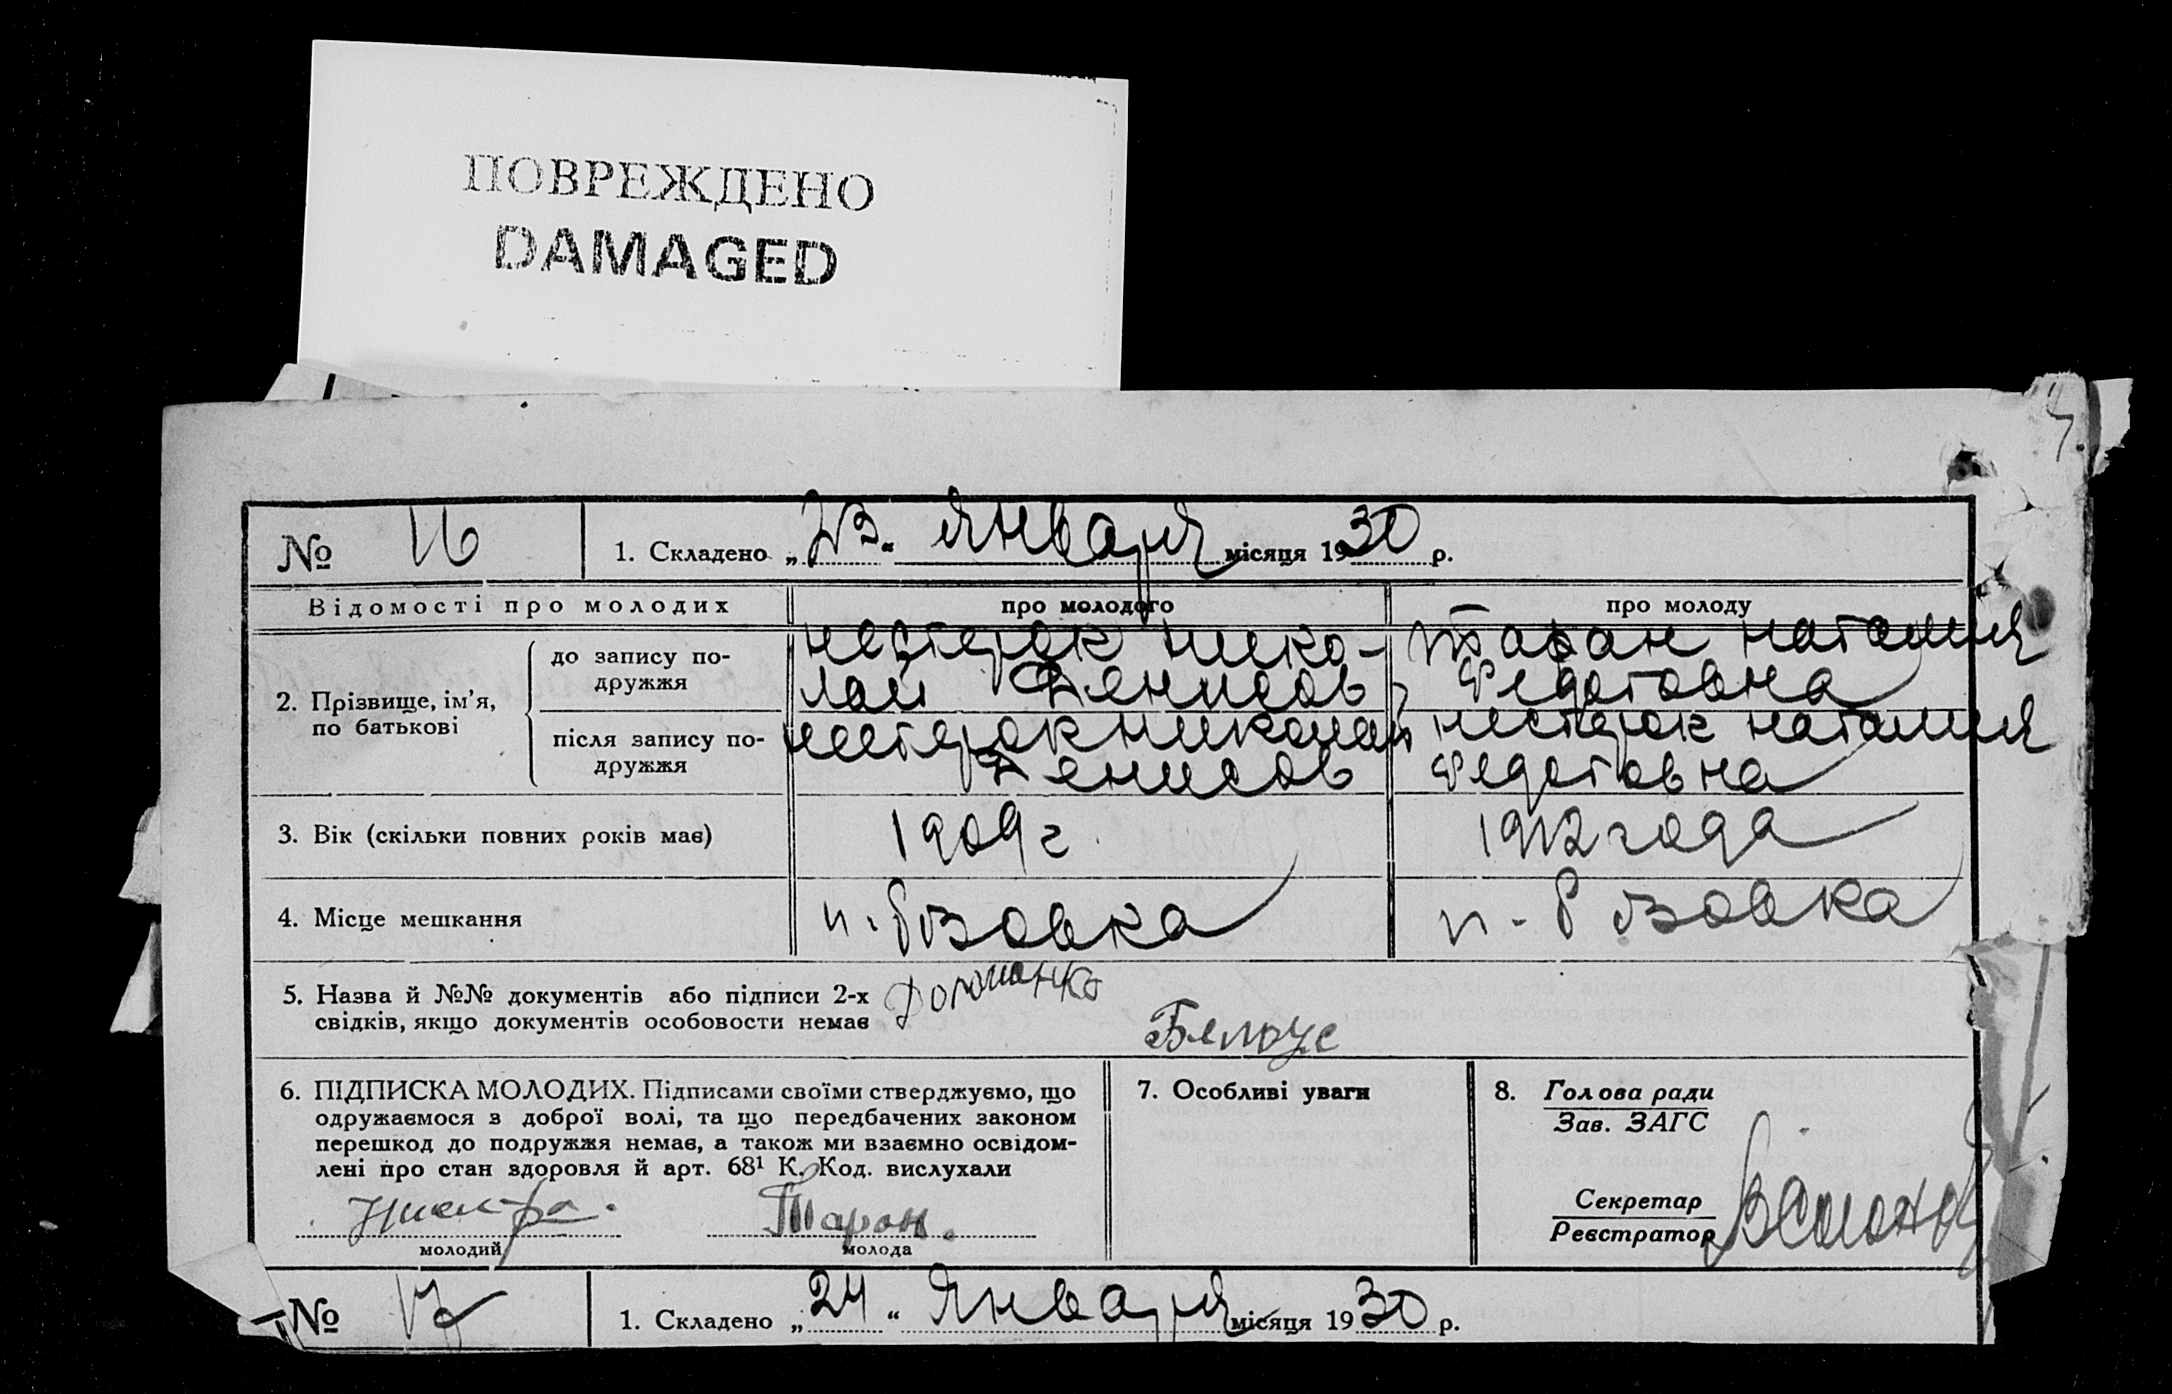 ПОВРЕЖДЕНО
DAMAGED
№ 16 1. Складено „23“ Января місяця 1930 р.
Відомості про молодих про молодого про молоду
2. Прізвище, ім’я, по батькові
до запису подружжя
Нестерюк Нико-
лай Денисов
Таран Наталия
Федотовна
після запису подружжя
Нестерюк Николай
Денисов
Нестерюк Наталия
Федотовна
3. Вік (скільки повних років має) 1909 г. 1912 года
4. Місце мешкання
5. Назва й №№ документів або підписи 2-х
свідків, якщо документів особовости немає
Белоус
6. ПІДПИСКА МОЛОДИХ. Підписами своїми стверджуємо, що
одружаємося з доброї волі, та що передбачених законом
перешкод до подружжя немає, а також ми взаємно освідом-
лені про стан здоровля й арт. 68¹ К. Код. вислухали
Таран.
молодий молода
7. Особливі уваги
8. Голова ради
Зав. ЗАГС
Секретар
Реєстратор
№ 17 1. Складено „24“ Января місяця 1930 р.